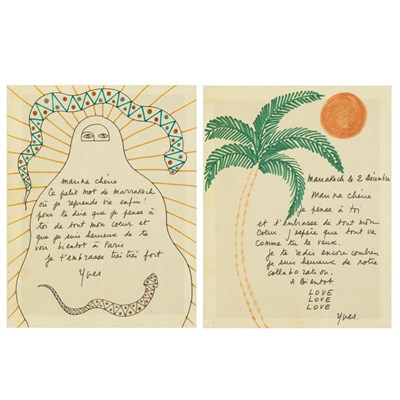 marina chérie
Ce petit mot de Marrakech
où je reprends vie enfin !
pour te dire que je pense à
toi de tout mon cœur et
que je suis heureux de te
voir bientôt à Paris
je t'embrasse très très fort
Yves
Marrakech le 2 Décembre
Marina chérie
je pense à toi
et t'embrasse de tout mon
cœur. J'espère que tout va
comme tu le veux.
je te redis encore combien
je suis heureux de notre
collaboration.
A bientôt
LOVE
LOVE
LOVE
Yves.